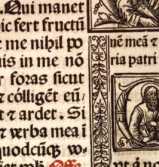 Qui manet
hic fert fructũ
me nihil po
uis in me nõ
foras sicut
⁊ cólligẽt eũ,
⁊ ardet. Si
⁊ verba mea i
quodcũq;
uẽ meũ ⁊
ria patri